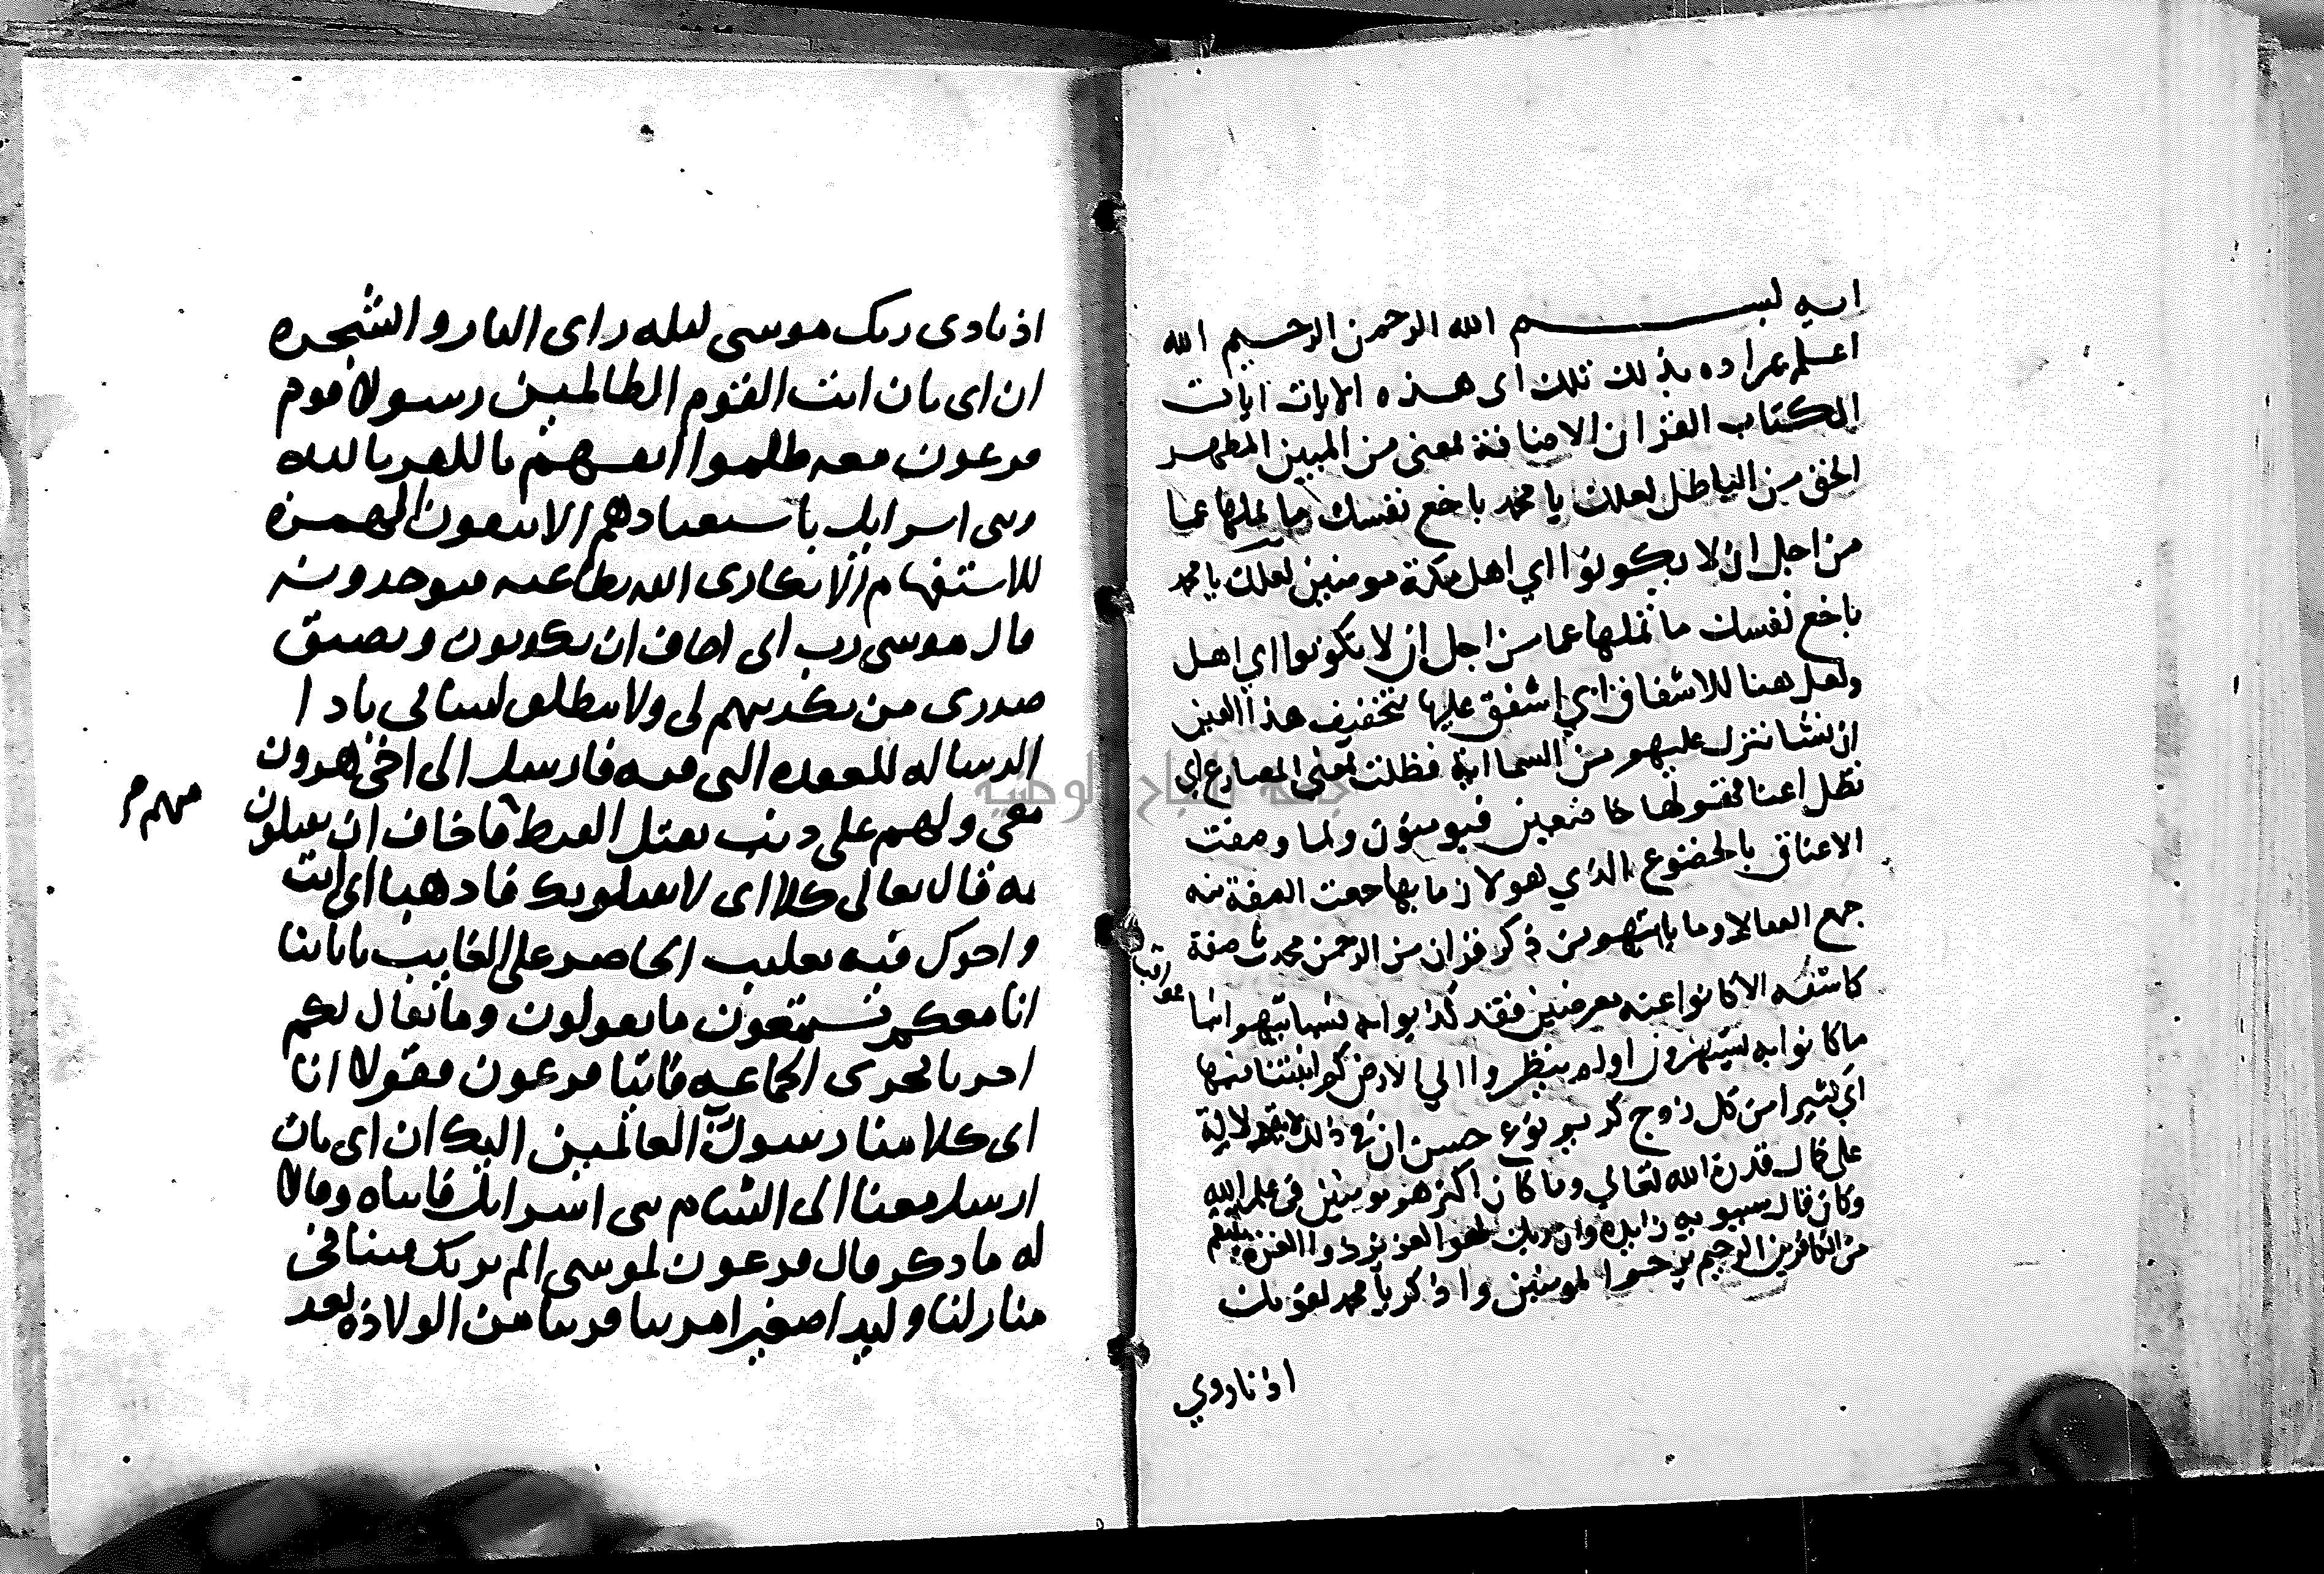 ايه بسم الله الرحمن الرحيم الله
اعلم بمراده بذلك تلك اى هذه الايات ايات
الكتاب القران الاضافة بمعنى من المبين المظهر
الحق من الباطل لعلك يا محمد باخع نفسك
من اجل ان لا يكونوا اي اهل مكة مومنين لعلك يا محمد
باخع نفسك من اجل ان لا يكونوا اي اهل
ولعل هنا للاشفاق اي اشفق عليها بتخفيف هذا
ان نشا ننزل عليهم من السما اية فظلت بمعنى المضارع اي
تظل اعنا خاضعين فيومنون ولما وصفت
الاعناق بالخضوع الذي هو لا الصفة منه
جمع وما ياتيهم من ذكر قران من الرحمن محدث صفة
كاشفه الا كانوا عنه معرضين فقد كذبوا به فسياتيهم انبا
عواقب
ما كانوا به يستهزون اولم ينظروا الي الارض كم انبتنا فيها
اي كثيرا من كل زوج كريم نوع حسن ان في ذلك لاية دلالة
على كمال قدرة الله تعالي وما كان اكثرهم مومنين في علم الله
وكان قال سيبويه زايدة وان ربك لهو العزيز ذوا العزة
من الكافرين الرحيم يرحم المومنين واذكر يا محمد لقومك
اذ نادي
اذ نادى ربك موسى ليله راى النار والشجره
ان اى بان ايت القوم الظالمين رسولا قوم
فرعون معه ظلموا انفسهم بالكفر بالله
وبنى اسرايل باستعبادهم الا يتقون الهمزة
للاستفهام الانكارى الله بطاعته فيوحدونه
قال موسى رب انى اخاف ان يكذبون ويضيق
صدرى من تكذيبهم لى ولا ينطلق لسانى بادا
الرساله للعقده التى فيه فارسل الى اخى هرون
معى ولهم على ذنب بقتل القبطى فاخاف ان يقتلون
منهم
به قال تعالى كلا اى لا يقتلونك فاذهبا اى انت
واخوك فيه تغليب الحاضر على الغايب باياتنا
انا معكم مستمعون ما يقولون وما يقال لكم
اجريا مجرى الجماعه فاتيا فرعون فقولا انا
اى كلا منا رسول رب العالمين اليك ان اى بان
ارسل معنا الى الشام بنى اسرايل فاتياه وقالا
له ما ذكر قال فرعون لموسى الم نربك فينا فى
منازلنا وليدا صغيرا قريبا من الولاده بعد